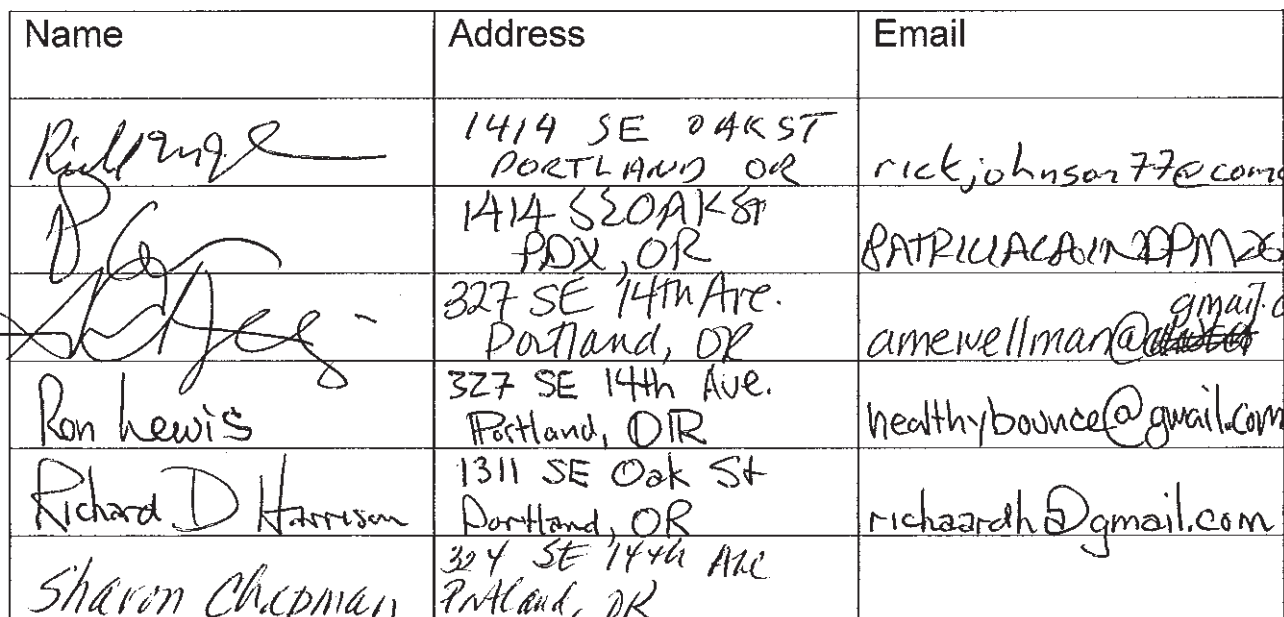 Name Address Email
1414 SE OAK ST
PORTLAND OR rickjohnson77@comc
1414 SE OAK ST
PDX, OR
327 SE 14th Ave. gmail.c
Portland, OR amewellman@
Ron Lewis 327 SE 14th Ave.
Portland, OR healthybounce@gmail.com
Richard D Harrison 1311 SE Oak St
Portland, OR richaardh@gmail.com
Sharon Chapman 324 SE 14th Ave
Portland, OR